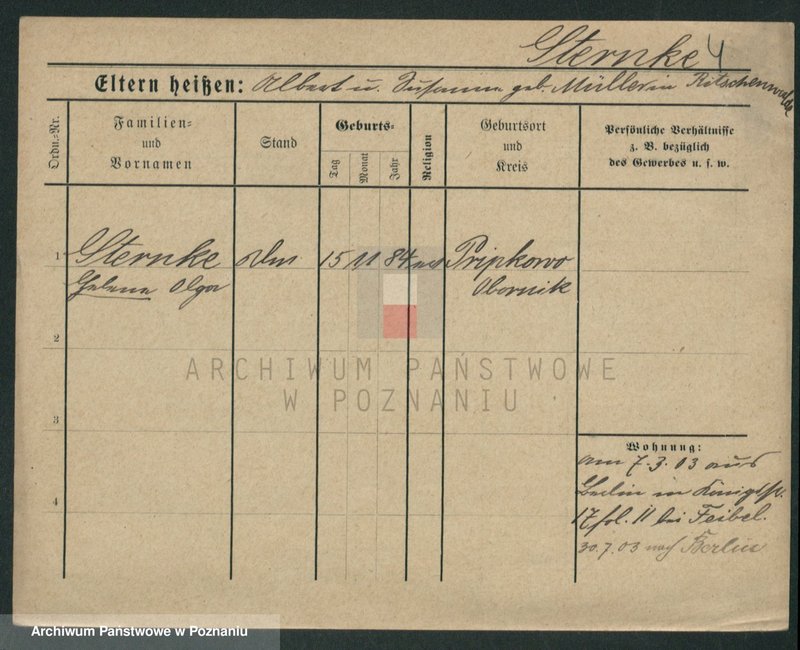 Sternke 4
Eltern heißen: Albert u. Susanna geb. Müller in Ritschenwalde
Ordn.-Nr.
Familien-
und
Vornamen
Stand
Geburts-
Tag
Monat
Jahr
Religion
Geburtsort
und
Kreis
Persönliche Verhältnisse
z. B. bezüglich
des Gewerbes u. s. w.
1 Sternke 15 11 84 Pripkowo
Helene Olga Obornik
2
3
4
Wohnung:
am 7.3.03 aus
Berlin in Königstr.
17 fol. 11 bei Feibel.
30.7.03 nach Berlin
ARCHIWUM PAŃSTWOWE
W POZNANIU
Archiwum Państwowe w Poznaniu